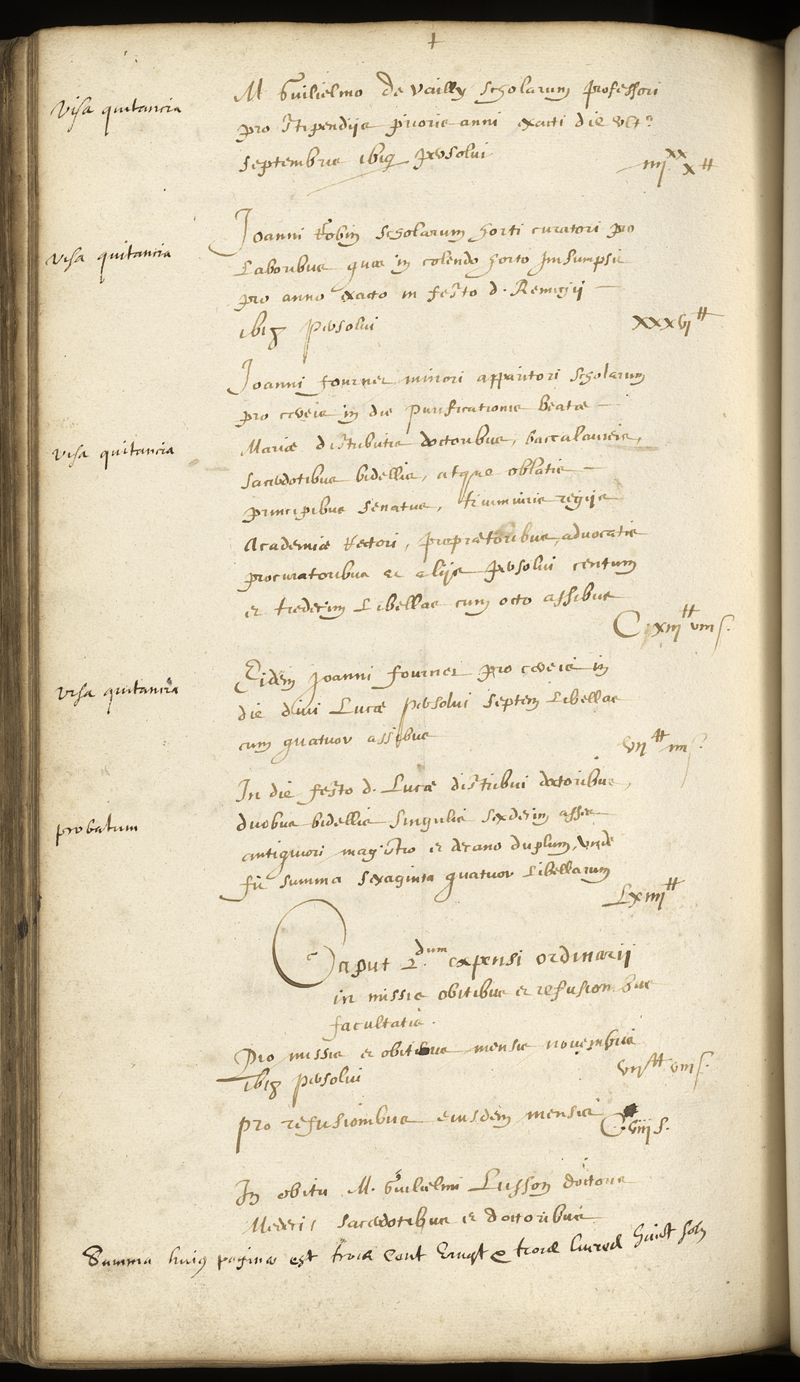 +
Visa quitancia
M Guilielmo De Vailly scholarum professori
pro stipendijs prioris anni exacti die ult.ª
septembris ibiq persolui
iiij xx x ♯
Visa quitancia
Joanni Robin scholarum horti curatori pro
Laboribus quos in colendo horto Insumpsit
pro anno exacto in festo d. Remigij —
ibiq persolui
xxxvj ♯
Joanni fournet minori apparitori scholarum
pro cereis in die purificationis beatae —
Visa quitancia
Mariae distributis doctoribus, baccalaureis,
sacerdotibus bidellis, atque oblatis —
principibus senatus, triumviris regijs
Academiae Rectori, propraetoribus, advocatis
procuratoribus et alijs persolui centum
et tredecim Libellas cum octo assibus
Cxiij ♯ viij s.
Visa quitancia
Eidem Joanni fournet pro cereis in
die diui Lucae persolui septem Libellas
cum quatuor assibus
vij ♯ iiij s.
In die festo d. Lucae distribui doctoribus,
probatum
duobus bidellis singulis sexdecim asses
antiquiori magistro et decano duplum, unde
fit summa sexaginta quatuor Libellarum
Lxiiij ♯
Caput 2.dum expensi ordinarij
in missis obitibus et refusionibus
facultatis.
Pro missis et obitibus mensis novembris
ibiq persolui
vij ♯ viij s.
pro refusionibus eiusdem mensis
Cviij s.
In obitu M. Guilielmi Lusson doctoris
Medici sacerdotibus et doctoribus
Summa huius paginae est trois cent vingt et trois livres huict solz